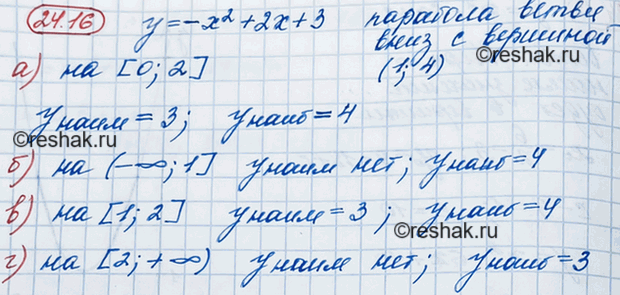 24.16 y=-x²+2x+3 парабола ветви
вниз с вершиной
(1; 4)
а) на [0; 2]
yнаим=3; yнаиб=4
©reshak.ru
©reshak.ru
б) на (-∞; 1] yнаим нет; yнаиб=4
в) на [1; 2] yнаим=3; yнаиб=4
©reshak.ru
©reshak.ru
г) на [2; +∞) yнаим нет; yнаиб=3